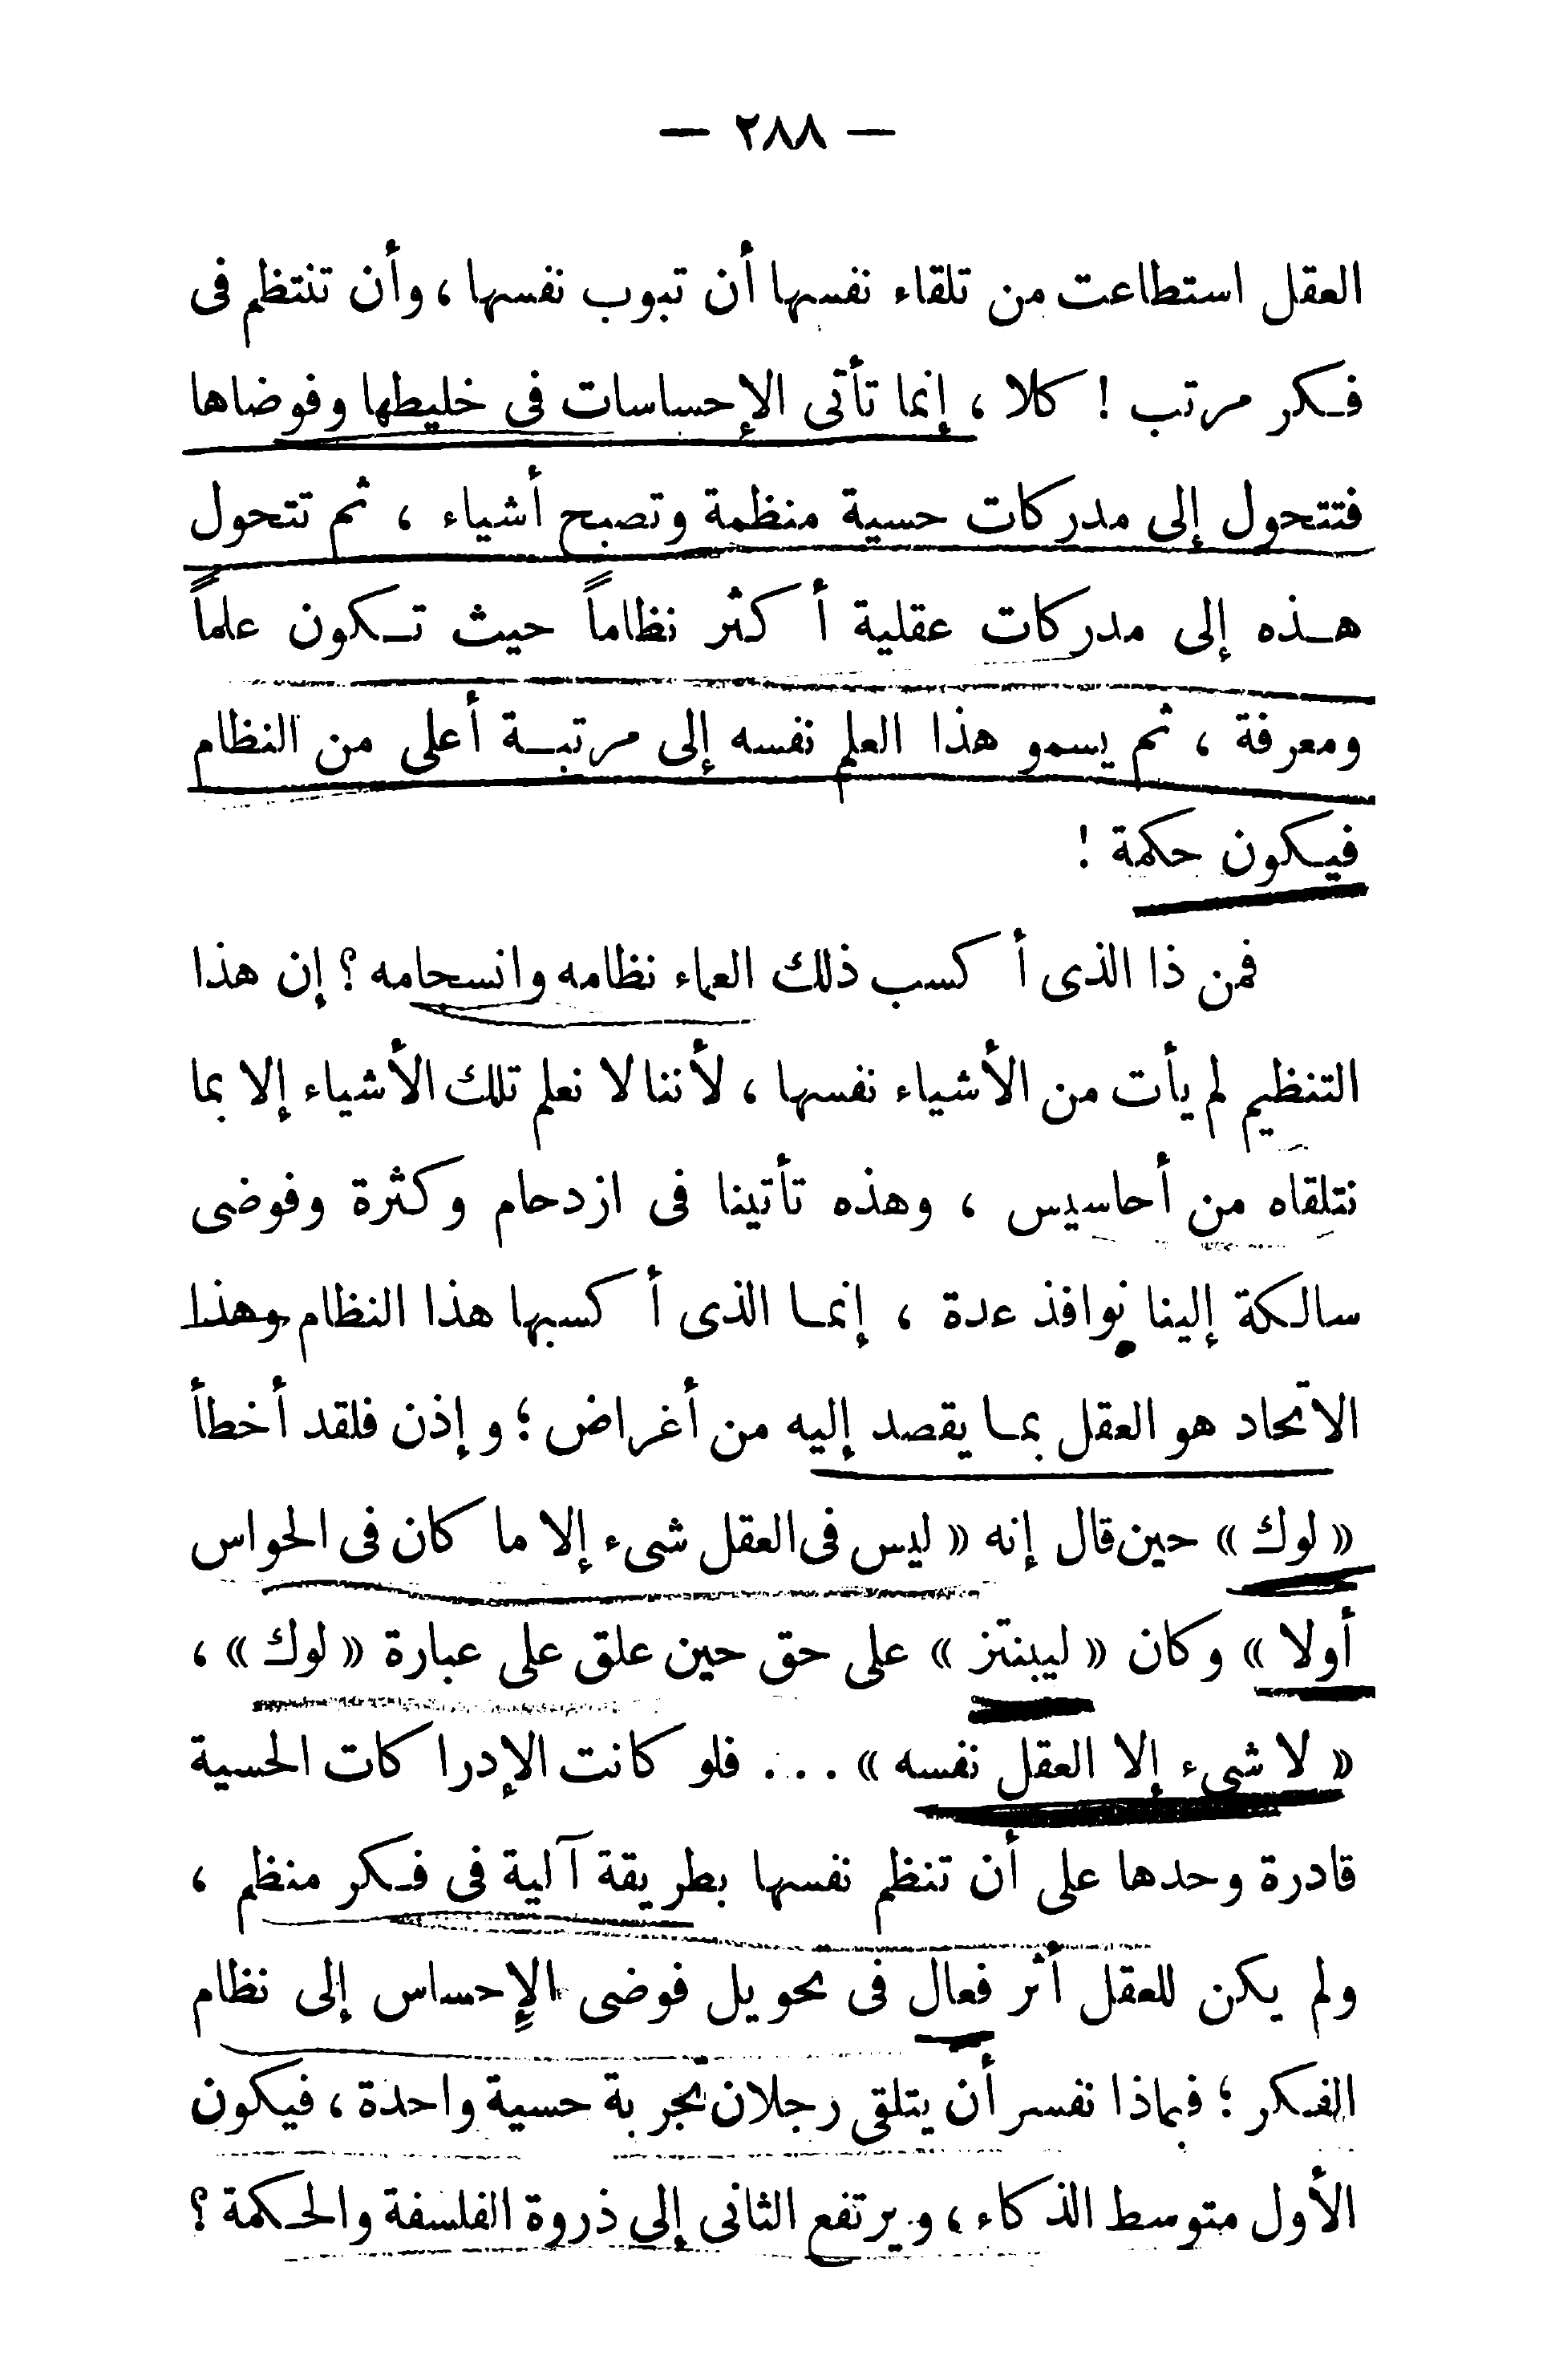 — ٢٨٨ —
العقل استطاعت من تلقاء نفسها أن تبوب نفسها ، وأن تنتظم فى
فكر مرتب ! كلا ، إنما تأتى الإحساسات فى خليطها وفوضاها
فتتحول إلى مدركات حسية منظمة وتصبح أشياء ، ثم تتحول
هذه إلى مدركات عقلية أكثر نظاماً حيث تكون علماً
ومعرفة ، ثم يسمو هذا العلم نفسه إلى مرتبة أعلى من النظام
فيكون حكمة !
فمن ذا الذى أكسب ذلك العماء نظامه وانسجامه ؟ إن هذا
التنظيم لم يأت من الأشياء نفسها ، لأننا لا نعلم تلك الأشياء إلا بما
نتلقاه من أحاسيس ، وهذه تأتينا فى ازدحام وكثرة وفوضى
سالكة إلينا نوافذ عدة ، إنما الذى أكسبها هذا النظام وهذا
الاتحاد هو العقل بما يقصد إليه من أغراض ؛ وإذن فلقد أخطأ
« لوك » حين قال إنه « ليس فى العقل شىء إلا ما كان فى الحواس
أولا » وكان « ليبنتز » على حق حين علق على عبارة « لوك » ،
« لا شىء إلا العقل نفسه » . . . فلو كانت الإدراكات الحسية
قادرة وحدها على أن تنظم نفسها بطريقة آلية فى فكر منظم ،
ولم يكن للعقل أثر فعال فى تحويل فوضى الإحساس إلى نظام
الفكر ؛ فبماذا نفسر أن يتلقى رجلان تجربة حسية واحدة ، فيكون
الأول متوسط الذكاء ، ويرتفع الثانى إلى ذروة الفلسفة والحكمة ؟